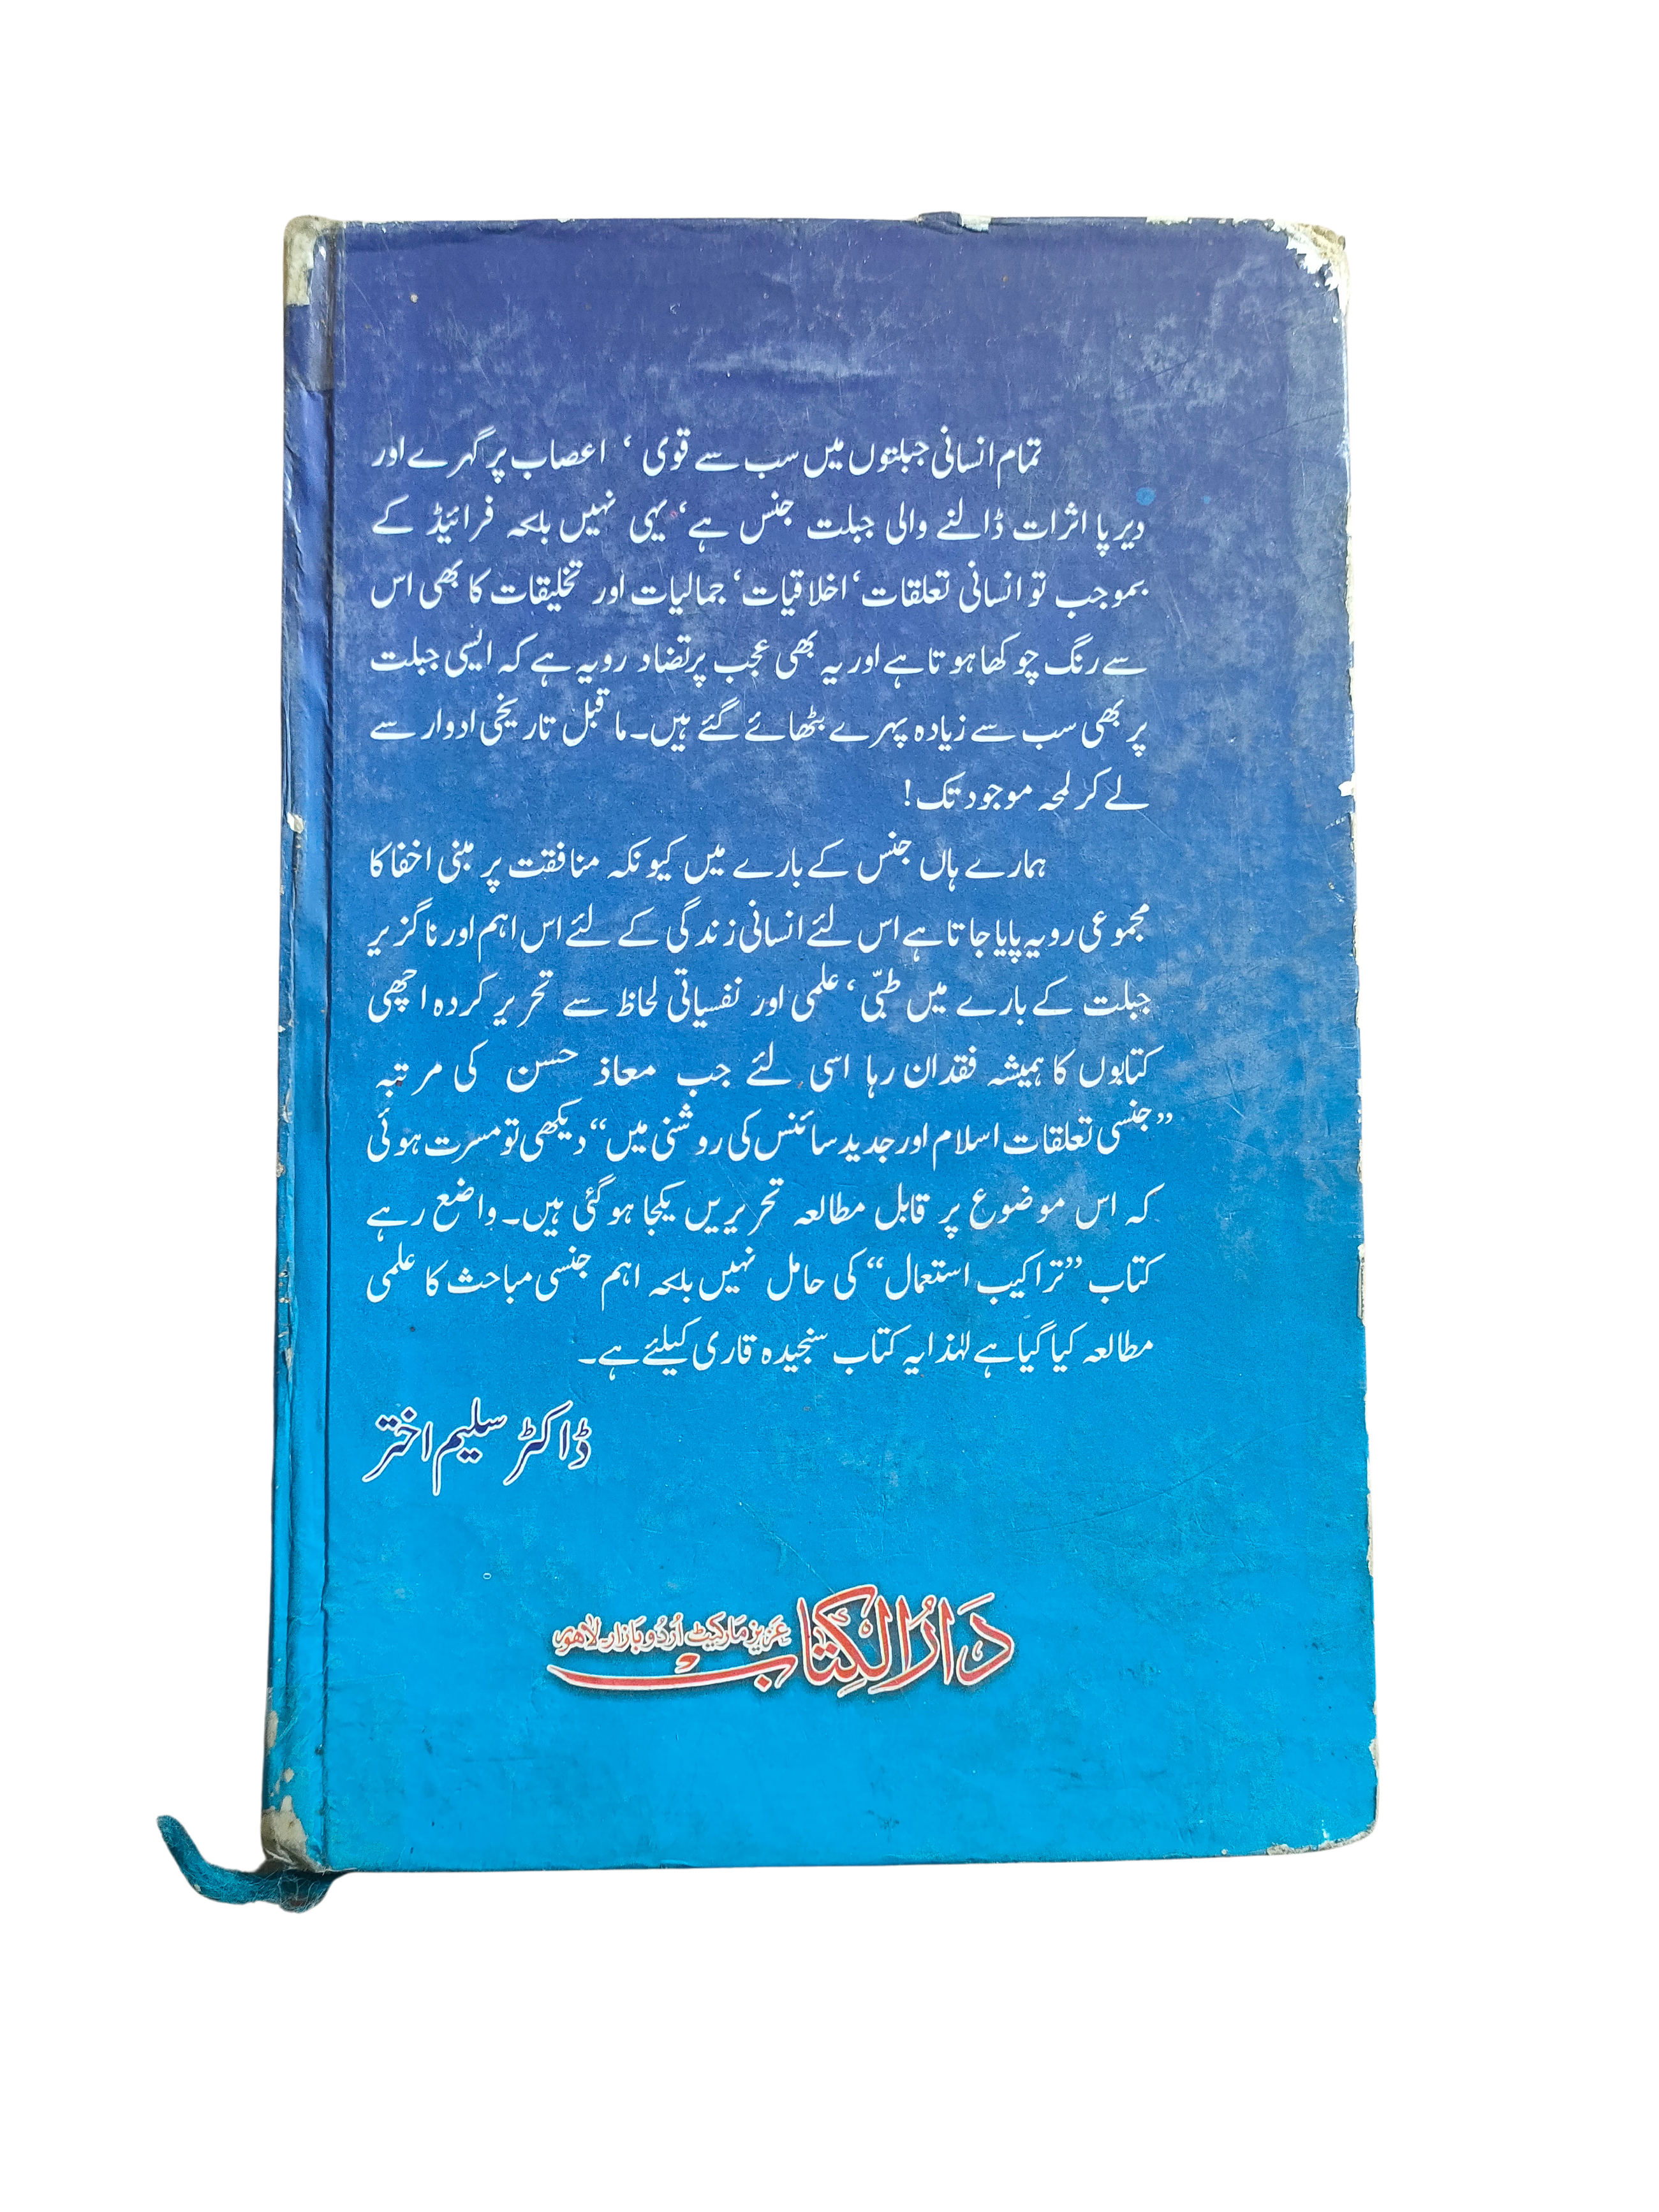 تمام انسانی جبلتوں میں سب سے قوی ‘ اعصاب پر گہرے اور
دیر پا اثرات ڈالنے والی جبلت جنس ہے‘ یہی نہیں بلکہ فرائیڈ کے
بموجب تو انسانی تعلقات‘ اخلاقیات‘ جمالیات اور تخلیقات کا بھی اس
سے رنگ چوکھا ہوتا ہے اور یہ بھی عجب پر تضاد رویہ ہے کہ ایسی جبلت
پر بھی سب سے زیادہ پہرے بٹھائے گئے ہیں۔ ماقبل تاریخی ادوار سے
لے کر لمحہ موجود تک!
ہمارے ہاں جنس کے بارے میں کیونکہ منافقت پر مبنی اخفا کا
مجموعی رویہ پایا جاتا ہے اس لئے انسانی زندگی کے لئے اس اہم اور ناگزیر
جبلت کے بارے میں طبّی‘ علمی اور نفسیاتی لحاظ سے تحریر کردہ اچھی
کتابوں کا ہمیشہ فقدان رہا اسی لئے جب معاذ حسن کی مرتبہ
”جنسی تعلقات اسلام اور جدید سائنس کی روشنی میں“ دیکھی تو مسرت ہوئی
کہ اس موضوع پر قابل مطالعہ تحریریں یکجا ہو گئی ہیں۔ واضع رہے
کتاب ”تراکیب استعمال“ کی حامل نہیں بلکہ اہم جنسی مباحث کا علمی
مطالعہ کیا گیا ہے لہٰذا یہ کتاب سنجیدہ قاری کیلئے ہے۔
ڈاکٹر سلیم اختر
دَارُالکِتاب عزیز مارکیٹ اُردُو بازار لاہور